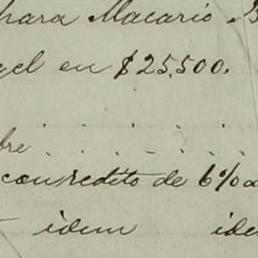 hara Macario
gel en $25,500.
bre . . . . . .
con redito de 6%a
idem ide